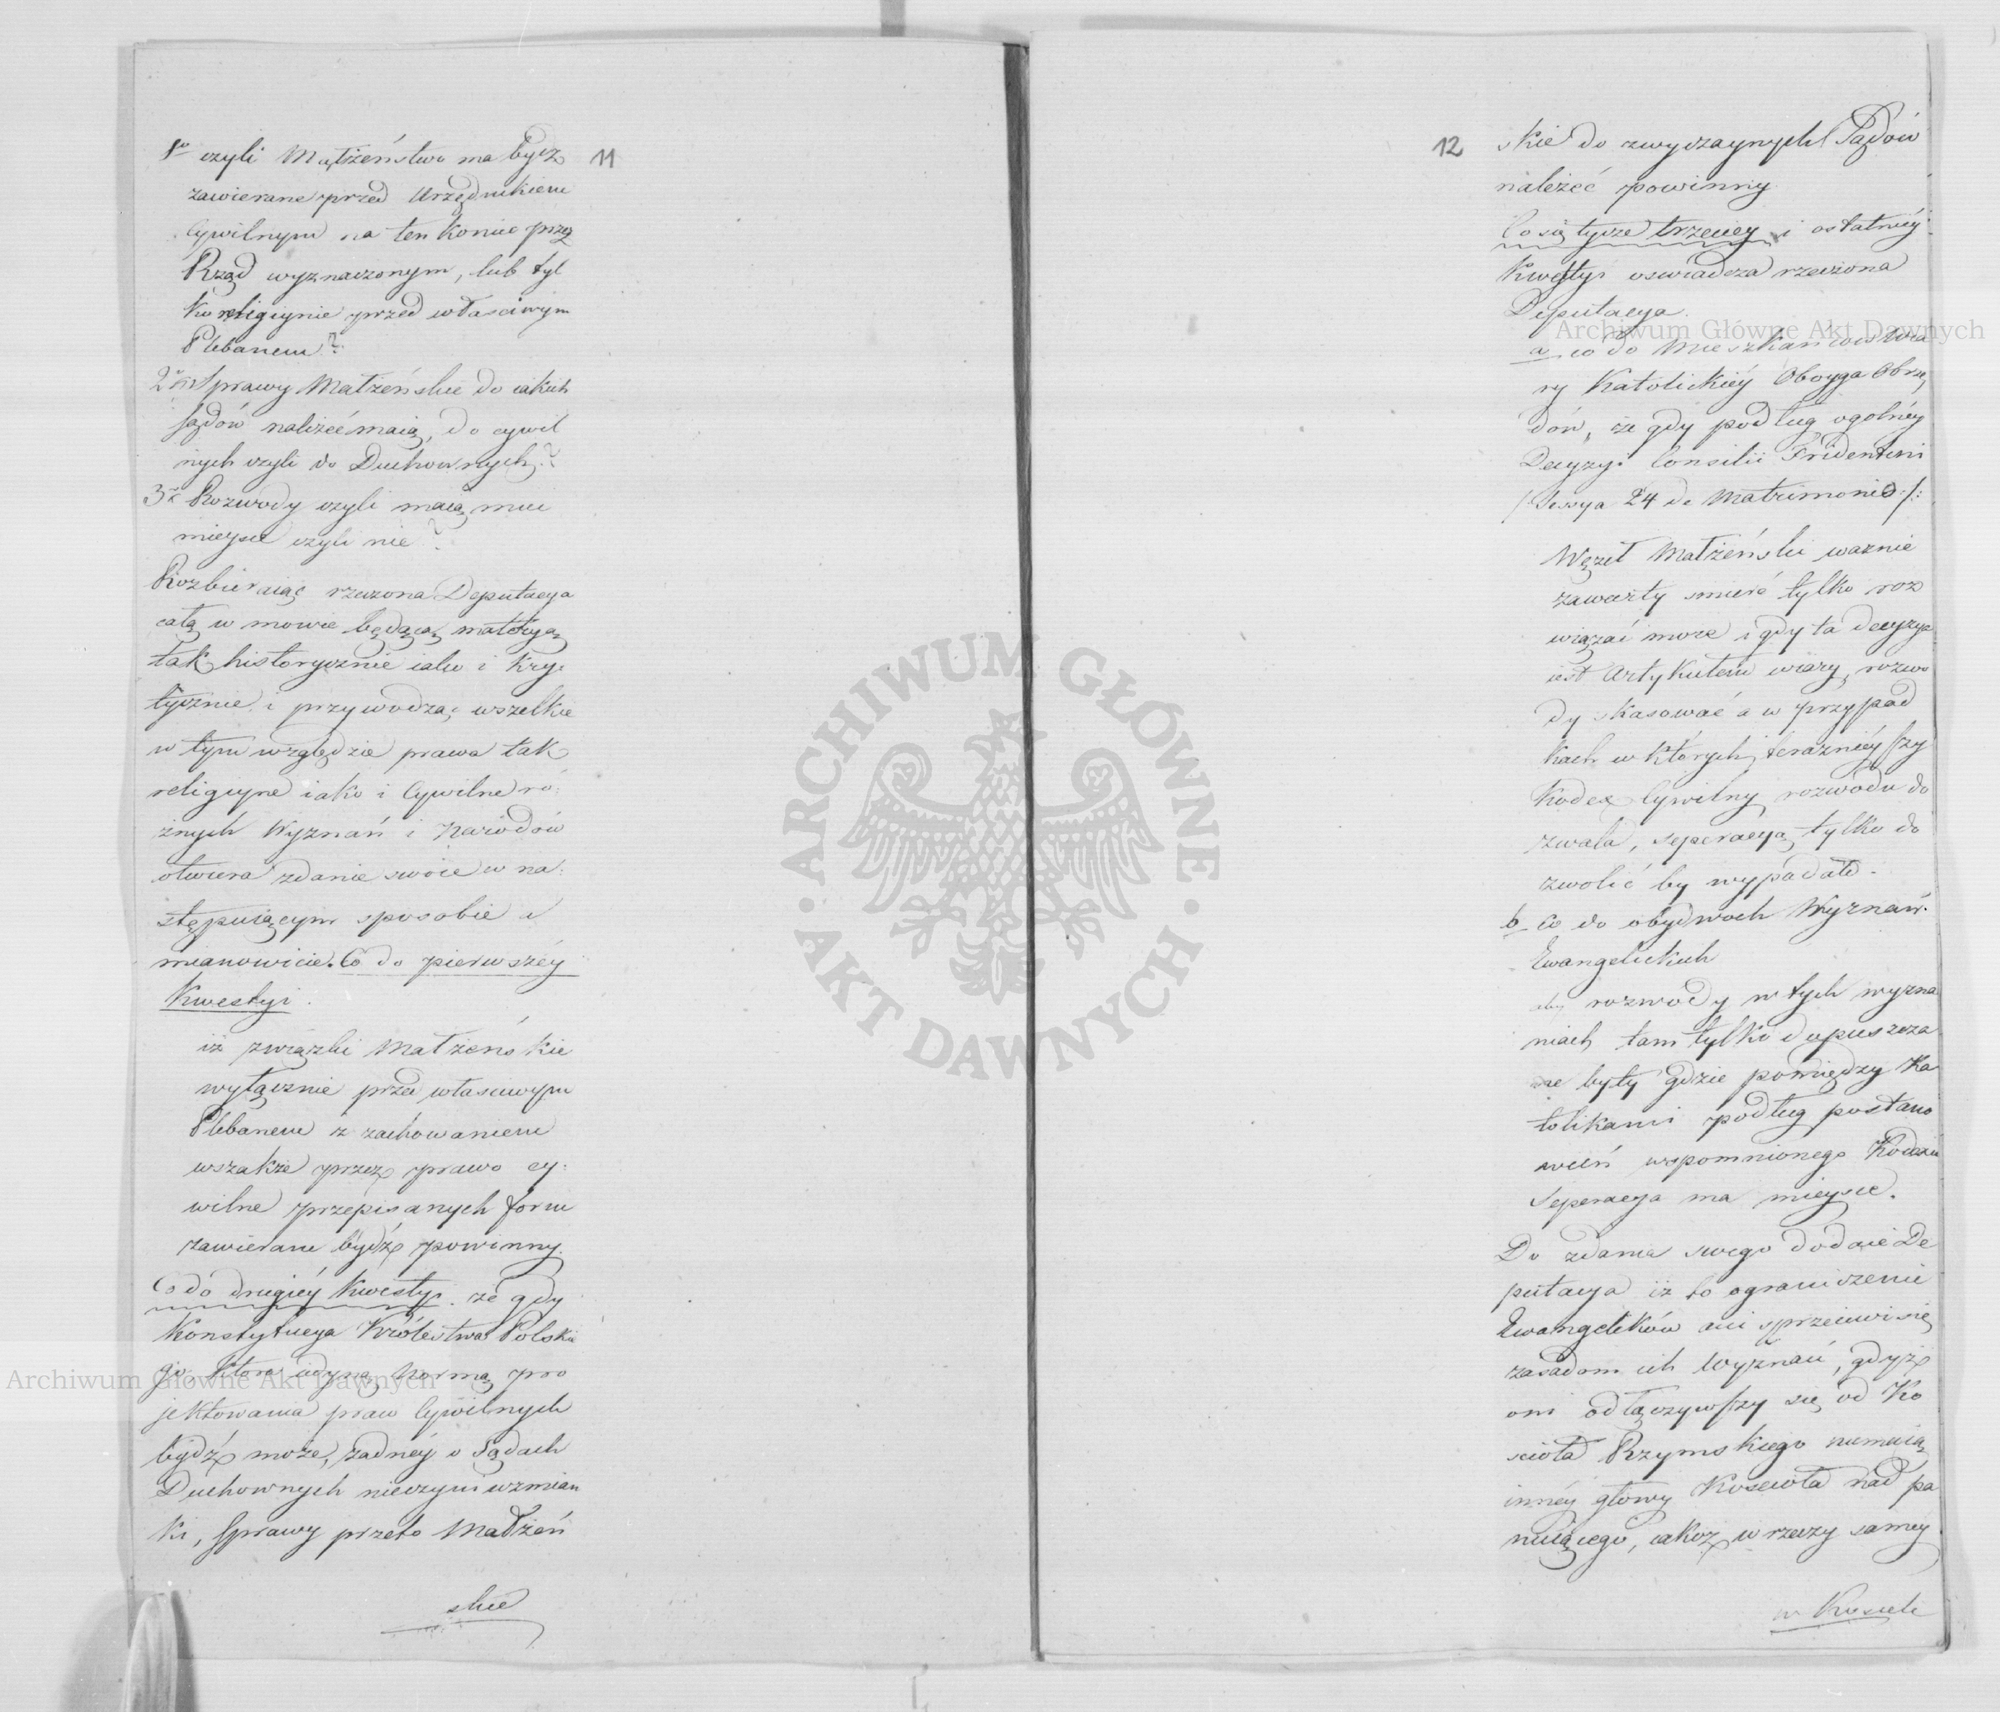 11
1o czyli Małżeństwo ma bydź
zawierane przed Urzędnikiem
Cywilnym na ten koniec przez
Rząd wyznaczonym, lub tyl
ko religiynie przed właściwym
Plebanem?
2re Sprawy Małżeńskie do iakich
sądów należeć maią, do cywil
nych czyli do Duchownych?
3e Rozwody czyli maią mieć
mieysce czyli nie?
Rozbieraiąc rzeczona Deputacya
całą w mowie będącą materyą
tak historycznie iako i kry
tycznie, i przywodząc wszelkie
w tym względzie prawa tak
religiyne iako i Cywilne ró:
żnych Wyznań i Narodów
otwiera zdanie swoie w na:
stępuiącym sposobie a
mianowicie. Co do pierwszéy
Kwestyi.
iż związki Małżeńskie
wyłącznie przed właściwym
Plebanem z zachowaniem
wszakże przez prawo cy:
wilne przepisanych form
zawierane bydź powinny.
Co do drugiéy Kwestyi. że gdy
Konstytucya Królestwa Polskie
go, która iedyną normą pro
jektowania praw Cywilnych
bydź może, żadnéy o Sądach
Duchownych nieczyni wzmian
ki, Sprawy przeto Małżeń
skie
12
skie do zwyczaynych Sądów
należeć powinny.
Co się tycze trzeciey i ostatniéy
Kwestyi oswiadcza rzeczona
Deputacya.
a, co do Mieszkańców Wia
ry Katolickiéy Oboyga Obrzę
dów, że gdy podług ogolnéy
Decyzyi Consilii Tridentini
/:Sessya 24 de Matrimonio:/:
Węzeł Małżeński ważnie
zawarty smierć tylko roz
wiązać może i gdy ta decyzya
iest Artykułem wiary, rozwo
dy skasować a w przypad
kach w których terazniéyszy
Kodex Cywilny rozwodu do
zwala, seperacyą tylko do
zwolić by wypadało.
b. Co do obydwoch Wyznań
Ewangelickich
aby rozwody w tych wyzna
niach tam tylko dopuszcza
ne były gdzie pomiędzy Ka
tolikami podług postano
wień wspomnionego Kodexu
Seperacya ma mieysce.
Do zdania swego dodaie De
putacya iż to ograniczenie
Ewangelików ani sprzeciwi się
zasadom ich Wyznań, gdyż
oni odłączywszy się od Ko
scioła Rzymskiego niemaią
innéy głowy Koscioła nad pa
nuiącego, iakoż w rzeczy samey
w Kosciele
Archiwum Główne Akt Dawnych
Archiwum Główne Akt Dawnych
ARCHIWUM GŁÓWNE · AKT DAWNYCH ·